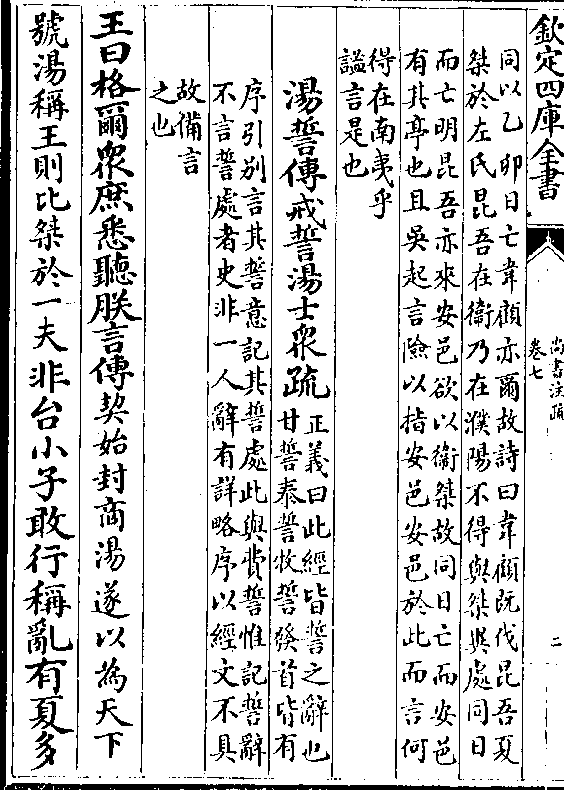 欽定四庫全書
尚書注疏
卷七
二
同以乙卯日亡韋顧亦爾故詩曰韋顧既伐昆吾夏
桀於左氏昆吾在衛乃在濮陽不得與桀異處同日
而亡明昆吾亦來安邑欲以衛桀故同日亡而安邑
有其亭也且吳起言險以指安邑安邑於此而言何
得在南夷乎
謚言是也
湯誓傳戒誓湯士衆疏
正義曰此經皆誓之辭也
甘誓泰誓牧誓發首皆有
序引別言其誓意記其誓處此與費誓惟記誓辭
不言誓處者史非一人辭有詳略序以經文不具
故備言
之也
王曰格爾衆庶悉聽朕言傳契始封商湯遂以為天下
號湯稱王則比桀於一夫非台小子敢行稱亂有夏多